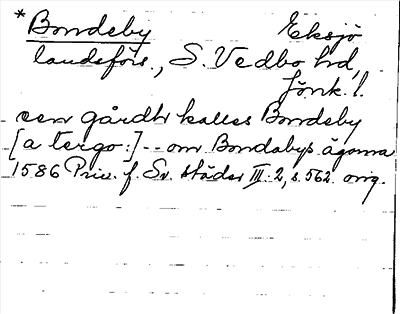 *Bondeby Eksjö
landsförs., S. Vedbo hd,
Jönk. l.
een gårdh kalles Bondeby
[a tergo:] -- om Bondabys ägorna
1586 Priv. f. Sv. städer III: 2, s. 562. orig.